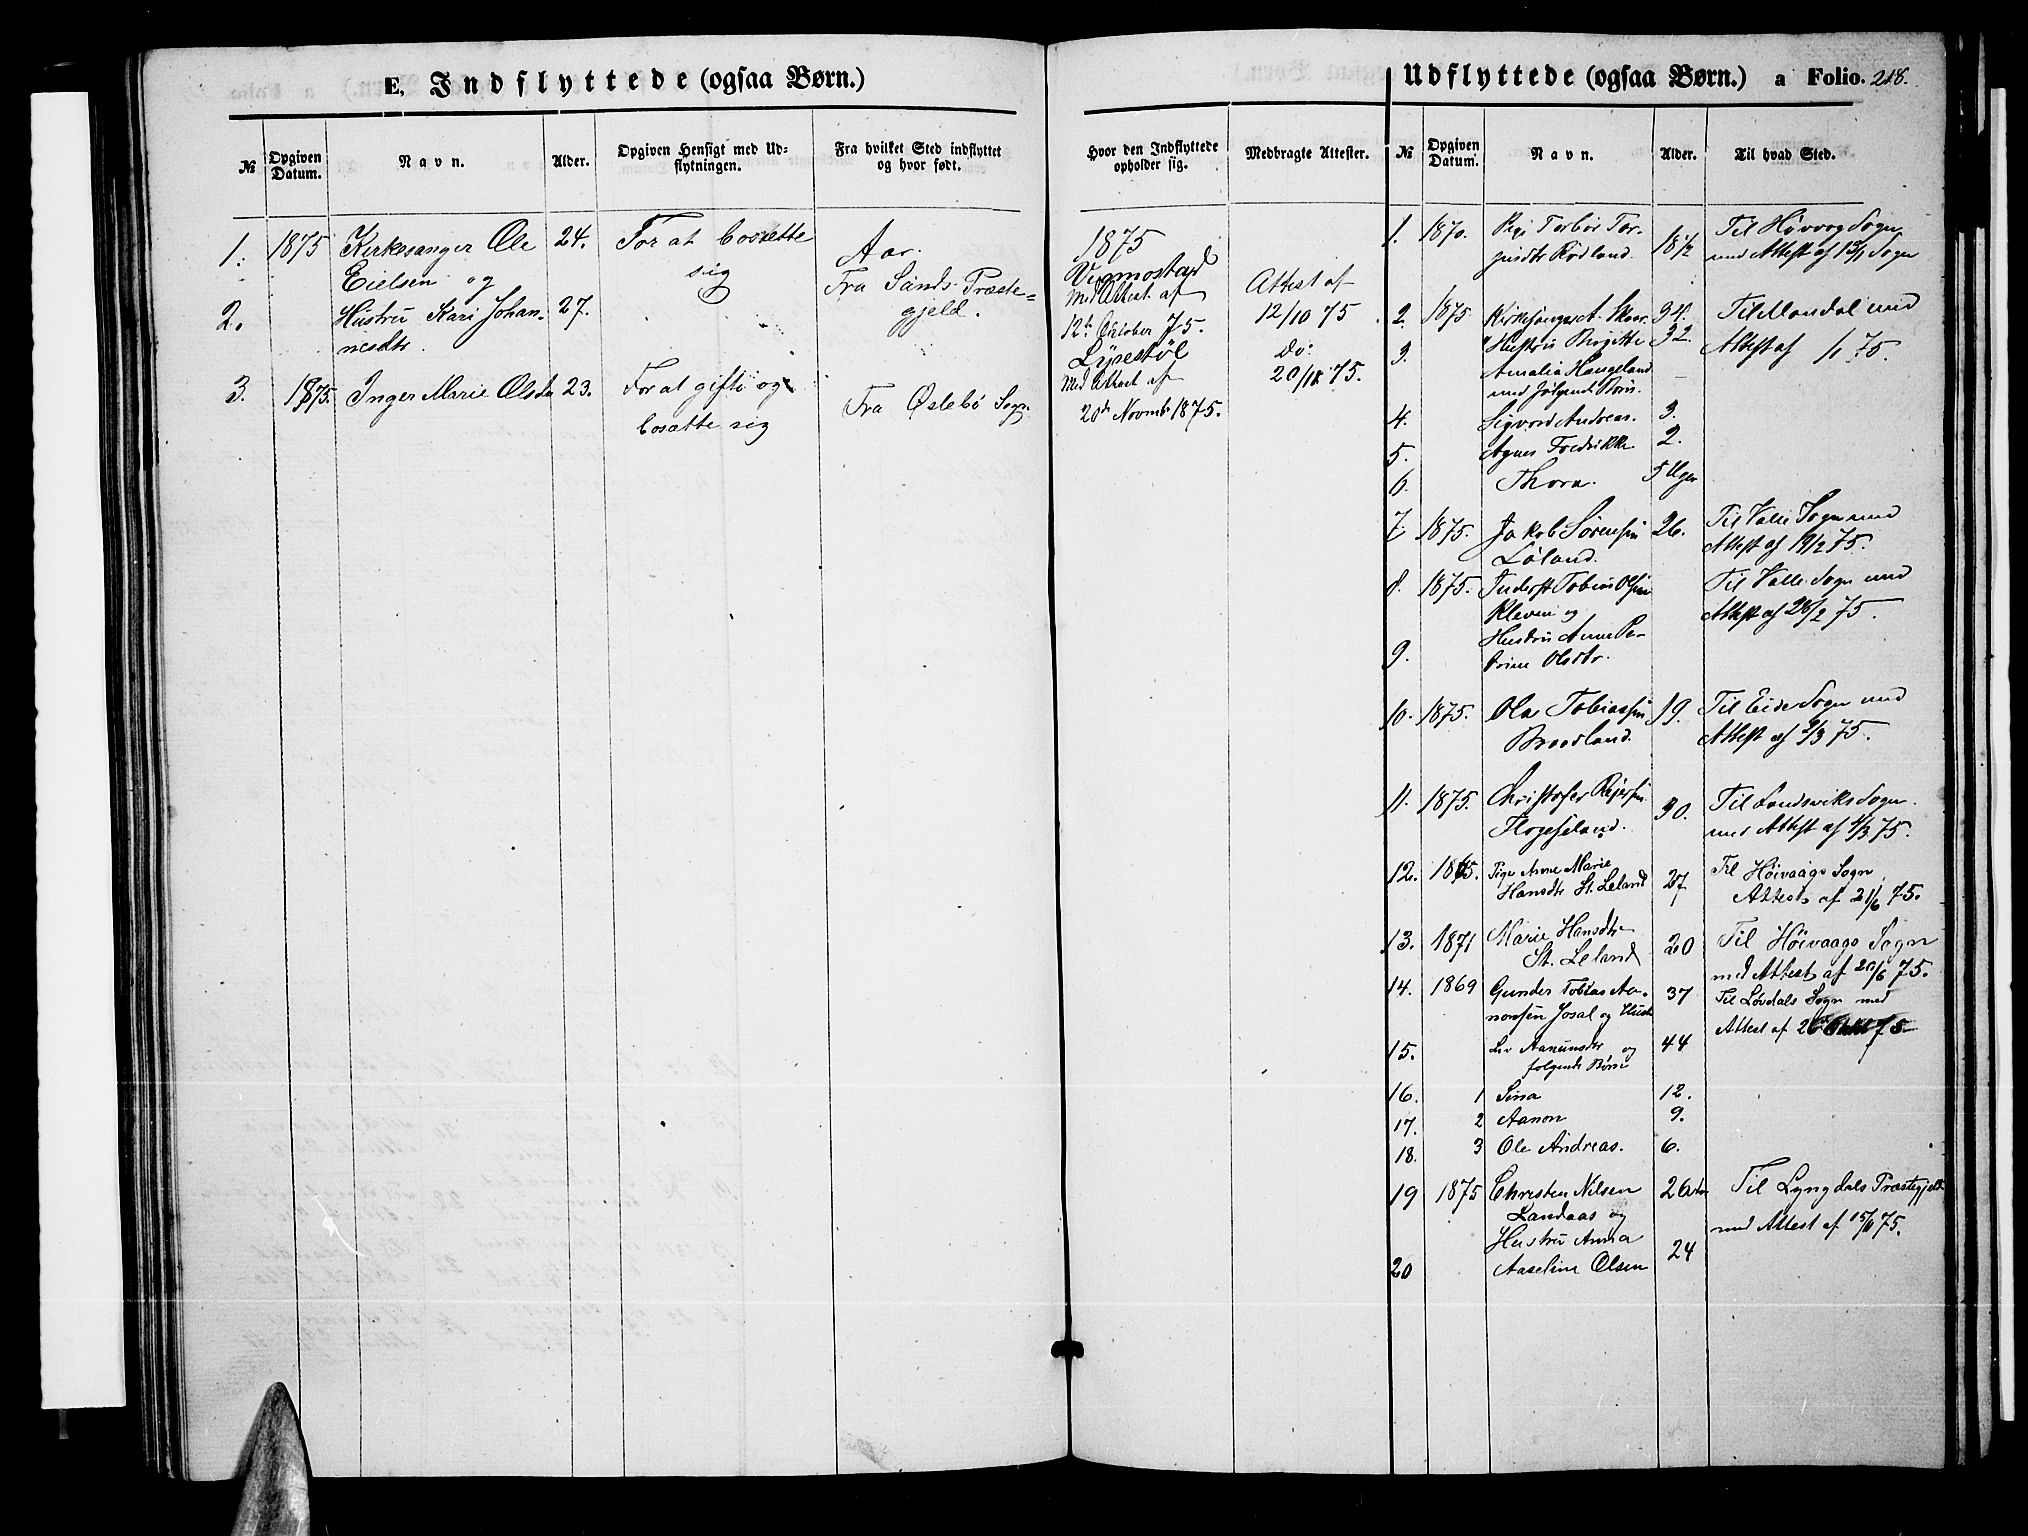 E, Indflyttede (ogsaa Børn.)
№ Opgiven Datum. Navn. Alder. Opgiven Hensigt med Udflytningen. Fra hvilket Sted indflyttet og hvor født.
1. 1875 Kirkesanger Ole 24. For at bosætte
Eielsen og sig Aas.
Fra Sands Præste-
2. Hustru Kari Johan- 27. gjeld.
nesdtr.
3. 1875. Inger Marie Olsdtr 23. For at gifte og
bosætte sig Fra Øslebö Sogn
Udflyttede (ogsaa Børn.) a Folio. 218.
Hvor den Indflyttede opholder sig. Medbragte Attester.
1875
Vigmostad Attest af
Med Attest af 12/10 75
12te October 75.
Lipestøl Do:
Med Attest af 20/11 75.
20de Novmb 1875.
№ Opgiven Datum. Navn. Alder. Til hvad Sted.
1. 1870. Pige Torbor Tor- 18½ Til Høvvog Sogn
med Attest af
2. 1875 Kirkesanger A. 34. Til Mandal med
3. Hustru Birgitte 32. Attest af 75.
Amalia Haugeland
med følgende Börn.
4. Sigvard Andreas. 3.
5. Agnes Fredrikke 2.
6. Thora. 5 Uger
7. 1875. Jakob Sørensen 26. Til Valle Sogn med
Løland. Attest af 19/2 75.
8. 1875. Inderst Tobias Olsen Til Valle Sogn med
Kleven og Attest af 28/2 75.
9. Hustru Anne Pe-
trine Olsdtr.
10. 1875. Ole Tobiassen 19. Til Eide Sogn med
Braadland. Attest af 3/3 75.
11. 1875. Christofer Rejersen 30. Til Landviks Sogn.
med Attest af 4/3 75.
12. 1875. Pige Anne Marie Til Höivaags Sogn
Hansdtr St. Leland 27 Attest af 21/6 75.
13. 1871 Marie Hansdtr 20 Til Höivaags Sogn
St. Leland med Attest af 20/6 75.
14. 1869 Gunder Tobias Aa- 37 Til Lövdals Sogn med
nonsen Josal og Hust Attest af
15. Liv Aanunsdtr og 44
folgende Börn
16. 1 Sina 12.
17. 2 Aanon 9.
18. 3 Ole Andreas. 6.
19 1875 Christen Nilsen 26 Til Lyngdals Præstegjeld
Landaas og med Attest af 15/11 75.
Hustru Anna 24
20 Aaseline Olsen